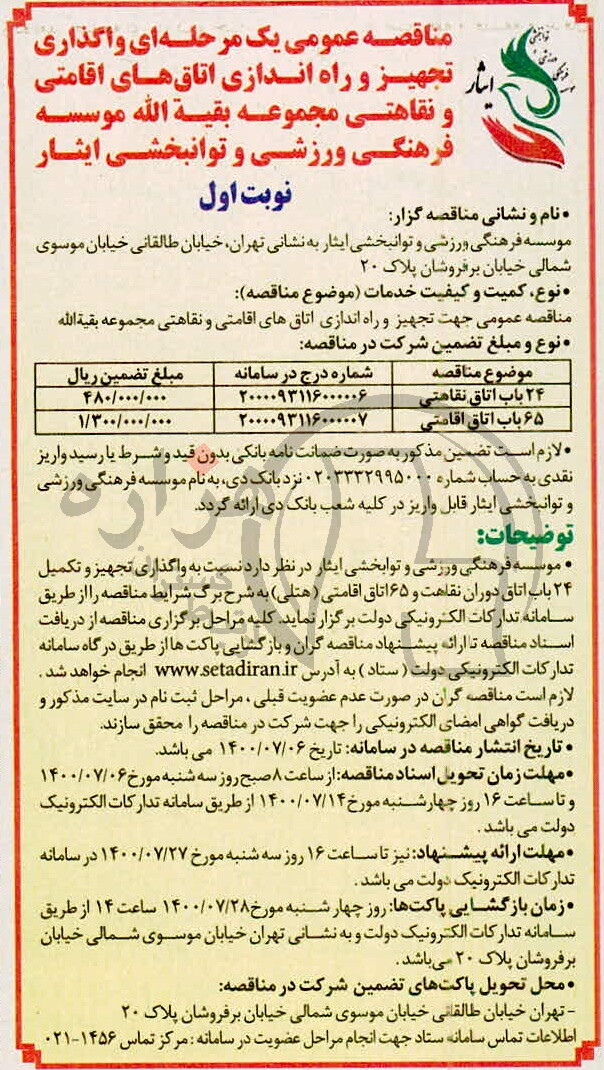 مناقصه عمومی یک مرحله‌ای واگذاری
تجهیز و راه اندازی اتاق‌های اقامتی
و نقاهتی مجموعه بقیة الله موسسه
فرهنگی ورزشی و توانبخشی ایثار
ایثار
نوبت اول
• نام و نشانی مناقصه گزار:
موسسه فرهنگی ورزشی و توانبخشی ایثار به نشانی تهران، خیابان طالقانی خیابان موسوی
شمالی خیابان برفروشان پلاک ۲۰
• نوع، کمیت و کیفیت خدمات (موضوع مناقصه):
مناقصه عمومی جهت تجهیز و راه اندازی اتاق های اقامتی و نقاهتی مجموعه بقیةالله
• نوع و مبلغ تضمین شرکت در مناقصه:
موضوع مناقصه شماره درج در سامانه مبلغ تضمین ریال
۲۴ باب اتاق نقاهتی ۲۰۰۰۰۹۳۱۱۶۰۰۰۰۰۶ ۴۸۰/۰۰۰/۰۰۰
۶۵ باب اتاق اقامتی ۲۰۰۰۰۹۳۱۱۶۰۰۰۰۰۷ ۱/۳۰۰/۰۰۰/۰۰۰
• لازم است تضمین مذکور به صورت ضمانت نامه بانکی بدون قید و شرط یا رسید واریز
نقدی به حساب شماره ۰۲۰۳۳۳۲۹۹۵۰۰۰ نزد بانک دی، به نام موسسه فرهنگی ورزشی
و توانبخشی ایثار قابل واریز در کلیه شعب بانک دی ارائه گردد.
توضیحات:
• موسسه فرهنگی ورزشی و توابخشی ایثار در نظر دارد نسبت به واگذاری تجهیز و تکمیل
۲۴ باب اتاق دوران نقاهت و ۶۵ اتاق اقامتی (هتلی) به شرح برگ شرایط مناقصه را از طریق
سامانه تدارکات الکترونیکی دولت برگزار نماید. کلیه مراحل برگزاری مناقصه از دریافت
اسناد مناقصه تا ارائه پیشنهاد مناقصه گران و بازگشایی پاکت ها از طریق درگاه سامانه
تدارکات الکترونیکی دولت (ستاد) به آدرس www.setadiran.ir انجام خواهد شد.
لازم است مناقصه گران در صورت عدم عضویت قبلی، مراحل ثبت نام در سایت مذکور و
دریافت گواهی امضای الکترونیکی را جهت شرکت در مناقصه را محقق سازند.
• تاریخ انتشار مناقصه در سامانه: تاریخ ۱۴۰۰/۰۷/۰۶ می باشد.
• مهلت زمان تحویل اسناد مناقصه: از ساعت ۸ صبح روز سه شنبه مورخ ۱۴۰۰/۰۷/۰۶
و تا ساعت ۱۶ روز چهارشنبه مورخ ۱۴۰۰/۰۷/۱۴ از طریق سامانه تدارکات الکترونیک
دولت می باشد.
• مهلت ارائه پیشنهاد: نیز تا ساعت ۱۶ روز سه شنبه مورخ ۱۴۰۰/۰۷/۲۷ در سامانه
تدارکات الکترونیک دولت می باشد.
• زمان بازگشایی پاکت‌ها: روز چهار شنبه مورخ ۱۴۰۰/۰۷/۲۸ ساعت ۱۴ از طریق
سامانه تدارکات الکترونیک دولت و به نشانی تهران خیابان موسوی شمالی خیابان
برفروشان پلاک ۲۰ می‌باشد.
• محل تحویل پاکت‌های تضمین شرکت در مناقصه:
- تهران خیابان طالقانی خیابان موسوی شمالی خیابان برفروشان پلاک ۲۰
اطلاعات تماس سامانه ستاد جهت انجام مراحل عضویت در سامانه: مرکز تماس ۱۴۵۶-۰۲۱
هزاره